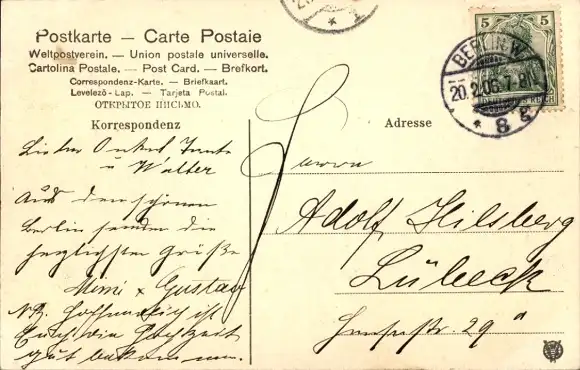 Postkarte — Carte Postale
Weltpostverein. — Union postale universelle.
Cartolina Postale. — Post Card. — Brefkort.
Correspondenz-Karte. — Briefkaart.
Levelező-Lap. — Tarjeta Postal.
ОТКРЫТОЕ ПИСЬМО.
Korrespondenz
Lieber Onkel Tante
u Walter
Aus dem schönen
Berlin senden die
herzlichsten Grüße
Mimi & Gustav
NB. Hoffentlich ist
Euch die Hochzeit
gut bekommen.
Adresse
Herrn
Adolf Hilsberg
Lübeck
29 a
5 5
BERLIN W.
20.2.06.7-8N.
* 8 g